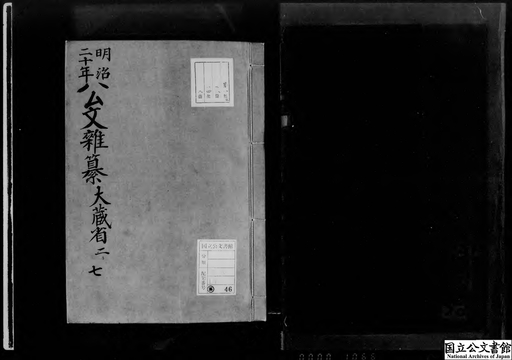 明治
二十年
公文雑纂 大蔵省 二 七
国立公文書館
46
国立公文書館
National Archives of Japan